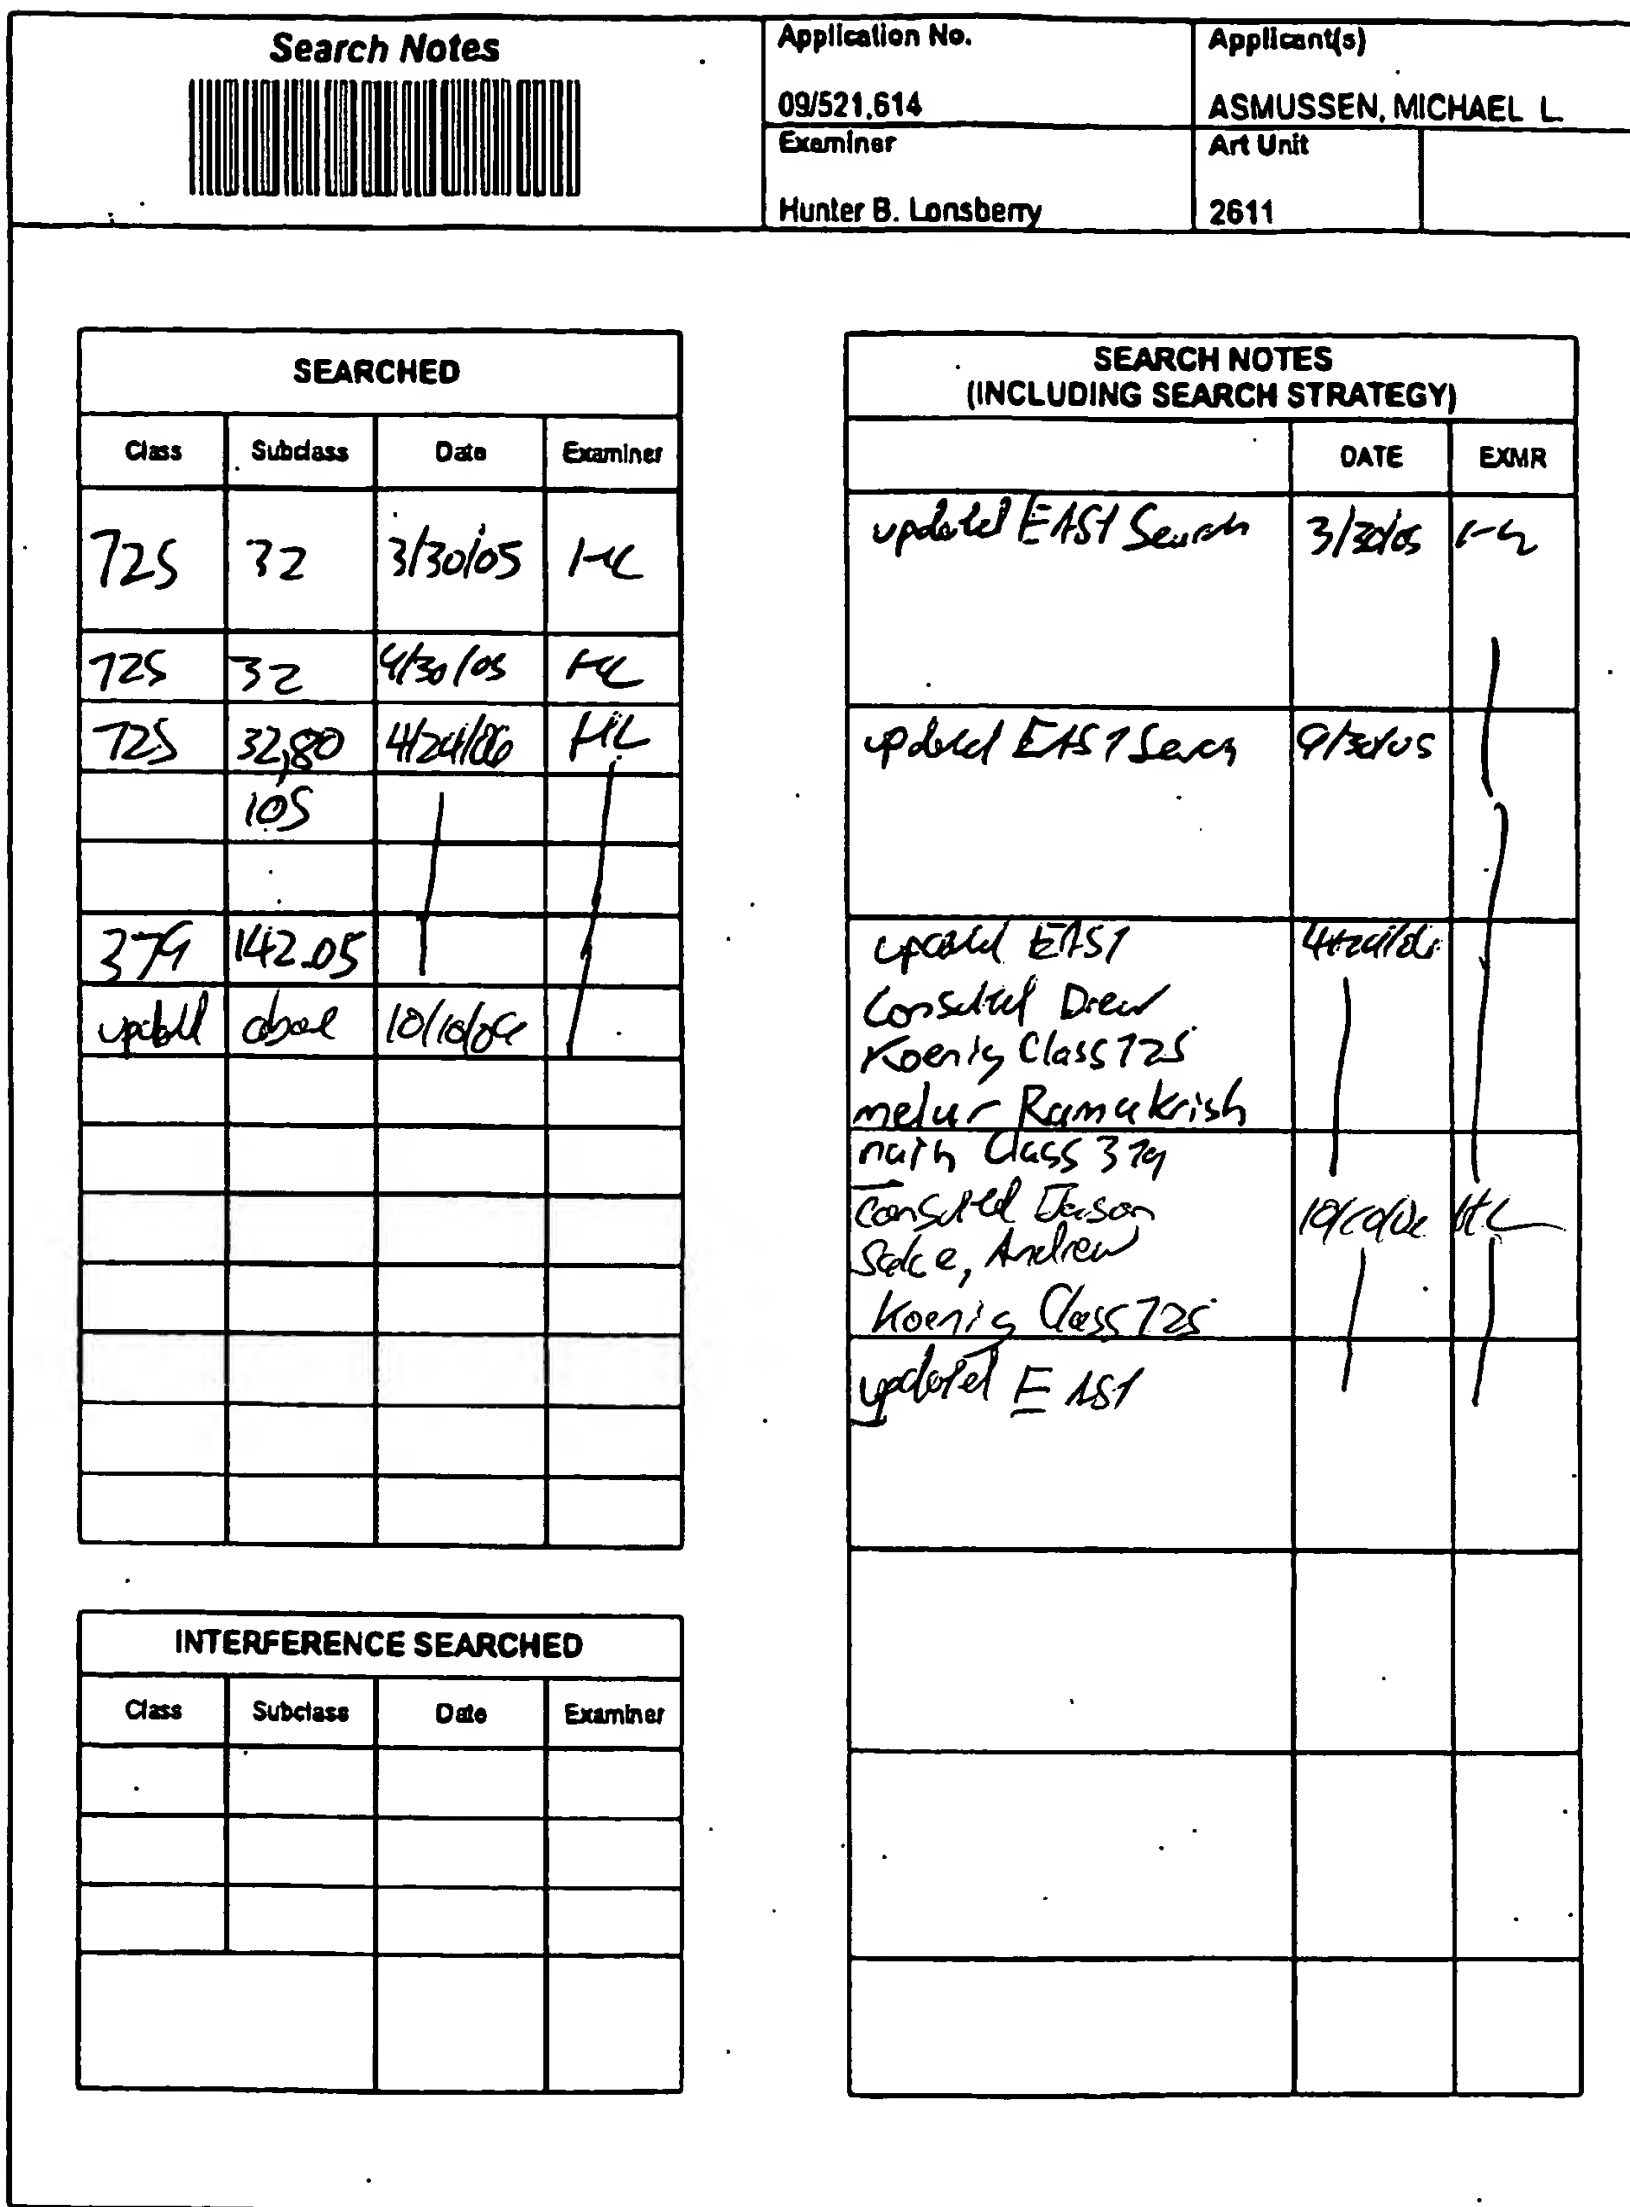 Search Notes
Application No.
09/521,614
Applicant(s)
ASMUSSEN, MICHAEL L.
Examiner
Hunter B. Lonsberry
Art Unit
2611
SEARCHED
Class Subclass Date Examiner
725 32 3/30/05 HL
725 32 9/30/05 HL
725 32,80 4/24/06 HL
105
379 142.05
updated above 10/10/06
INTERFERENCE SEARCHED
Class Subclass Date Examiner
SEARCH NOTES
(INCLUDING SEARCH STRATEGY)
DATE EXMR
updated EAST Search 3/30/05 HL
updated EAST Search 9/30/05
updated EAST 4/24/06
Consulted Drew
Koenig Class 725
melur Ramakrish
nath Class 379
Consulted Jason 10/10/06 HL
Salce, Andrew
Koenig Class 725
updated EAST